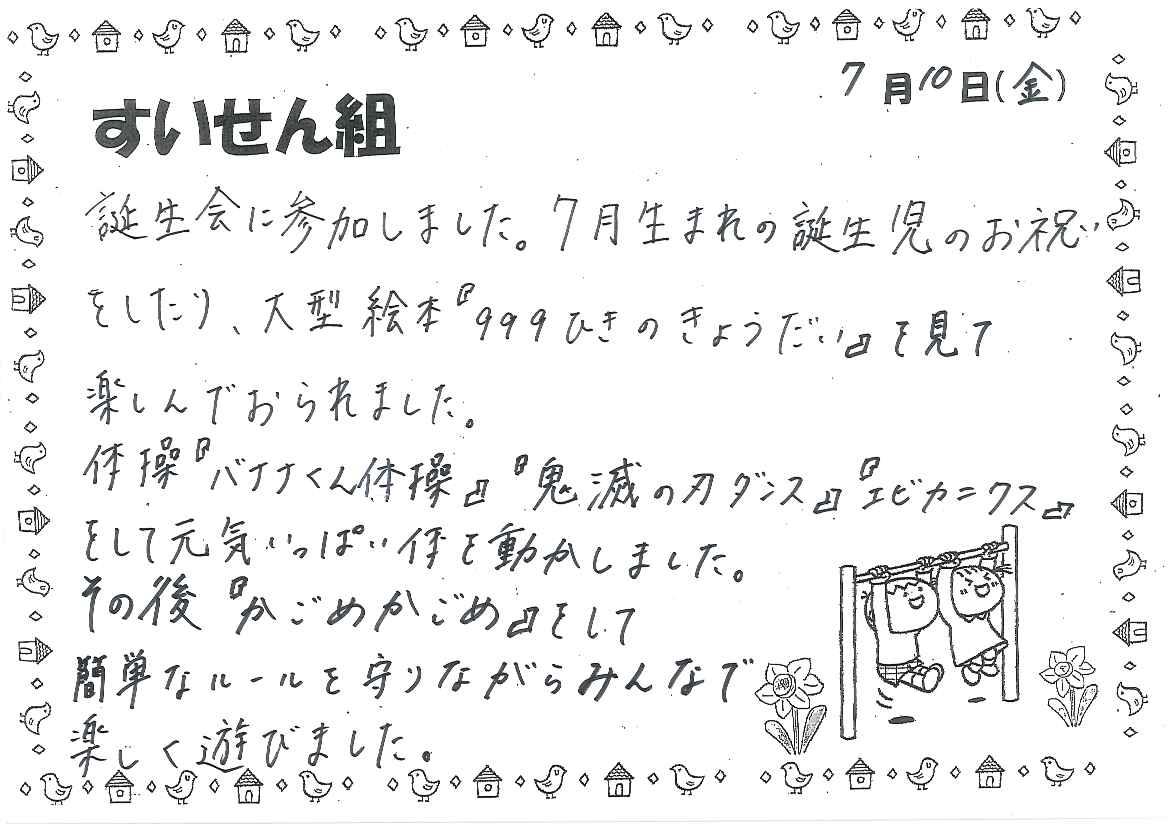 7月10日(金)
すいせん組
誕生会に参加しました。7月生まれの誕生児のお祝い
をしたり、大型絵本『999ひきのきょうだい』を見て
楽しんでおられました。
体操『バナナくん体操』『鬼滅の刃ダンス』『エビカニクス』
をして元気いっぱい体を動かしました。
その後『かごめかごめ』をして
簡単なルールを守りながらみんなで
楽しく遊びました。